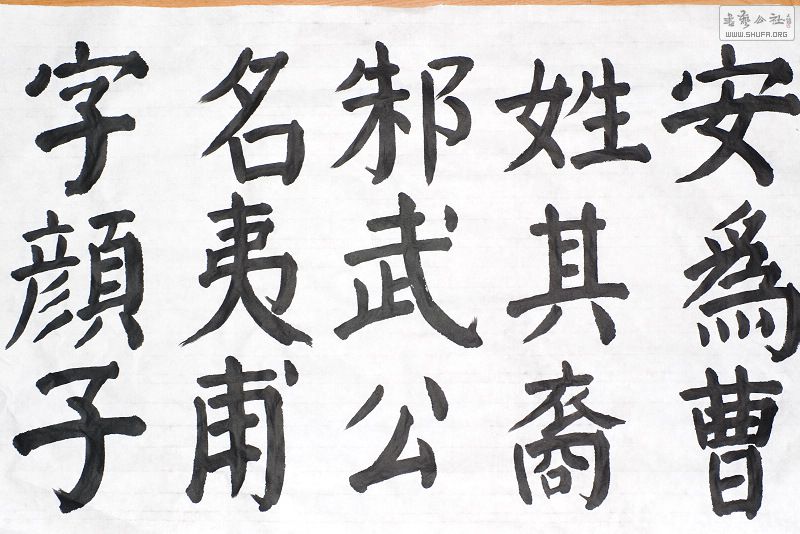 安爲曹
姓其裔
邾武公
名夷甫
字顔子
書藝公社
WWW.SHUFA.ORG